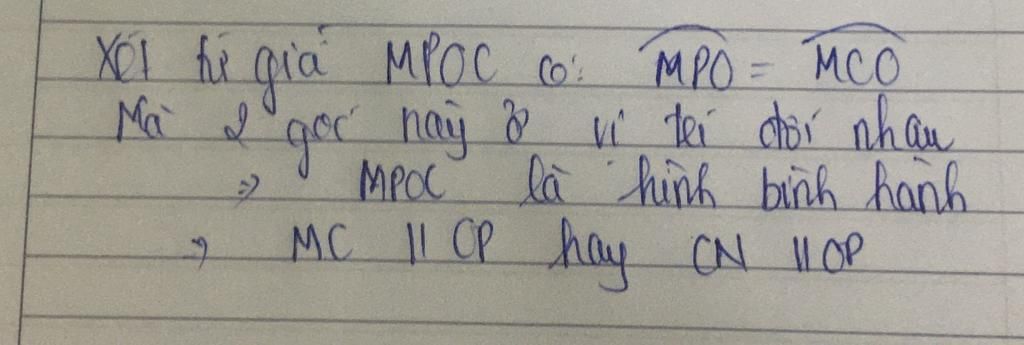 Xét tứ giá MPOC có: MPO = MCO
Mà 2 góc này ở vị trí đối nhau
=> MPOC là hình bình hành
=> MC // OP hay CN // OP